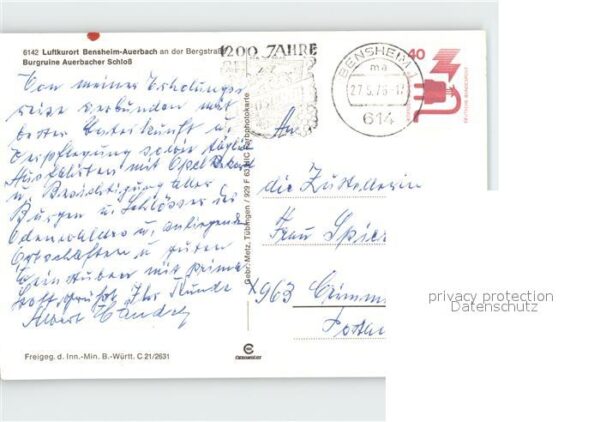 6142 Luftkurort Bensheim-Auerbach an der Bergstraß
Burgruine Auerbacher Schloß
1200 JAHRE
BENSHEIM 1
ma
27.5.76-17
614
40
DEUTSCHE BUNDESPOST
Von meiner Erholungs
reise verbunden mit
bester Unterkunft u.
Verpflegung sowie täglich
Ausfahrten mit Opel Rekord
u. Besichtigung aller
Burgen u. Schlösser des
Odenwaldes u. anliegende
Ortschaften u. guten
Weinstuben mit prima
grüßt Ihr Kunde
Albert
An
die Zustellerin
Frau Spier
X963 Crimm
Gebr. Metz, Tübingen / 929 F 63 HIC Farbphotokarte
Freigeg. d. Inn.-Min. B.-Württ. C 21/2631
privacy protection
Datenschutz